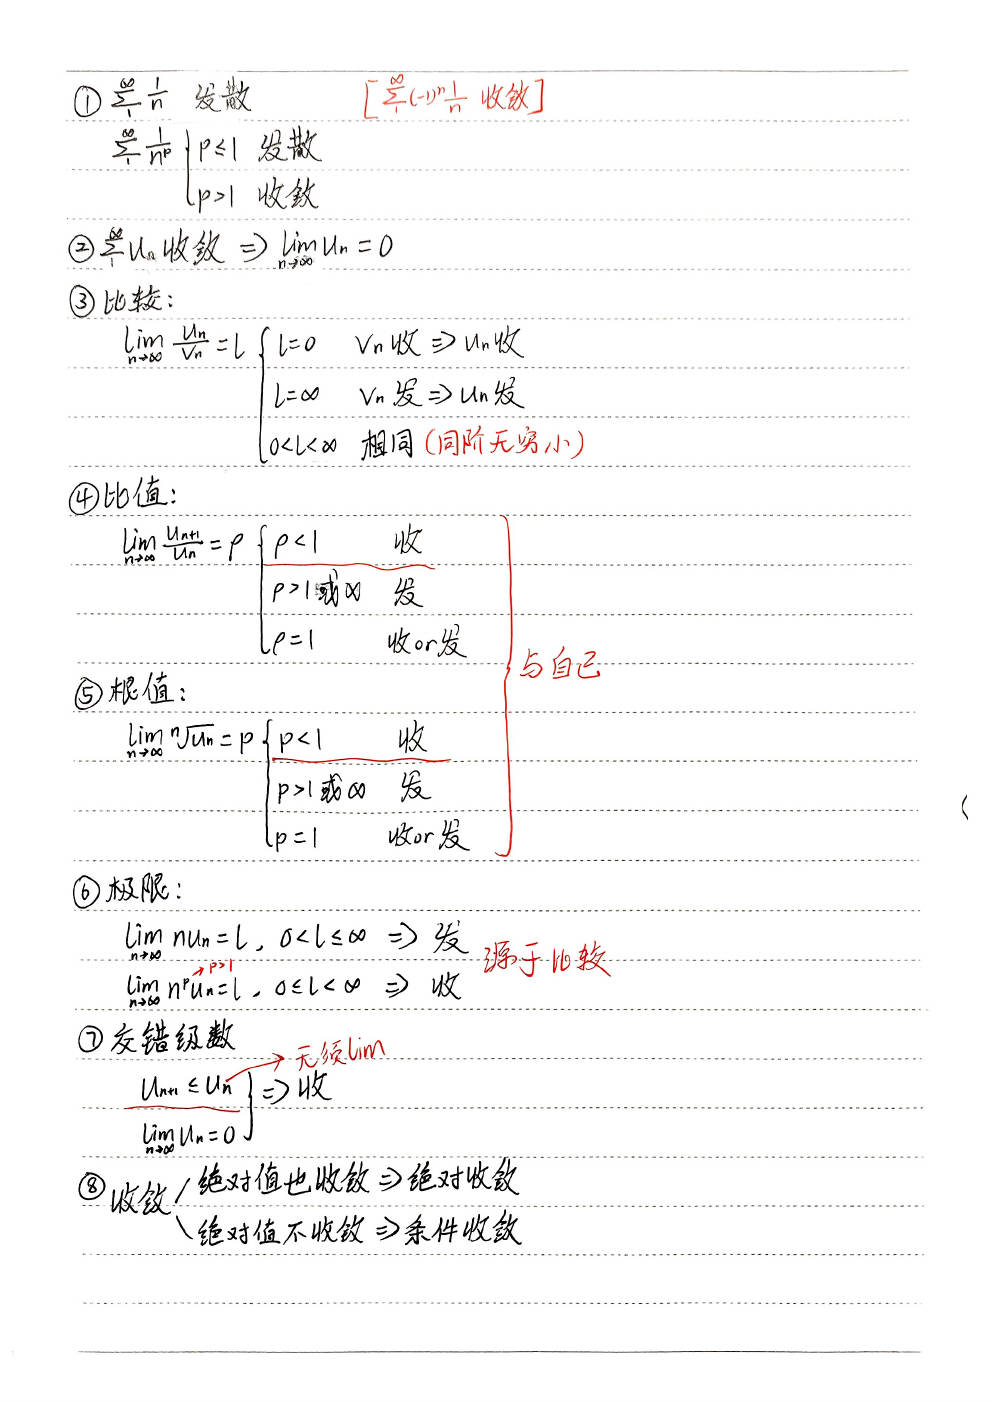 ① ∑_1^∞ 1/n 发散 [∑_1^∞ (-1)^n 1/n 收敛]
∑_1^∞ 1/n^p { p≤1 发散
p>1 收敛
② ∑_1^∞ Un 收敛 ⇒ lim_{n→∞} Un = 0
③ 比较:
lim_{n→∞} Un/Vn = l { l=0 Vn收 ⇒ Un收
l=∞ Vn发 ⇒ Un发
0<l<∞ 相同 (同阶无穷小)
④ 比值:
lim_{n→∞} Un+1/Un = ρ { ρ<1 收
ρ>1或∞ 发
ρ=1 收or发
与自己
⑤ 根值:
lim_{n→∞} ⁿ√Un = p { p<1 收
p>1或∞ 发
p=1 收or发
⑥ 极限:
lim_{n→∞} nUn = l, 0<l≤∞ ⇒ 发
源于比较
→p>1
lim_{n→∞} n^p Un = l, 0≤l<∞ ⇒ 收
⑦ 交错级数
→无须lim
Un+1 ≤ Un } ⇒ 收
lim_{n→∞} Un = 0
⑧ 收敛 / 绝对值也收敛 ⇒ 绝对收敛
\ 绝对值不收敛 ⇒ 条件收敛